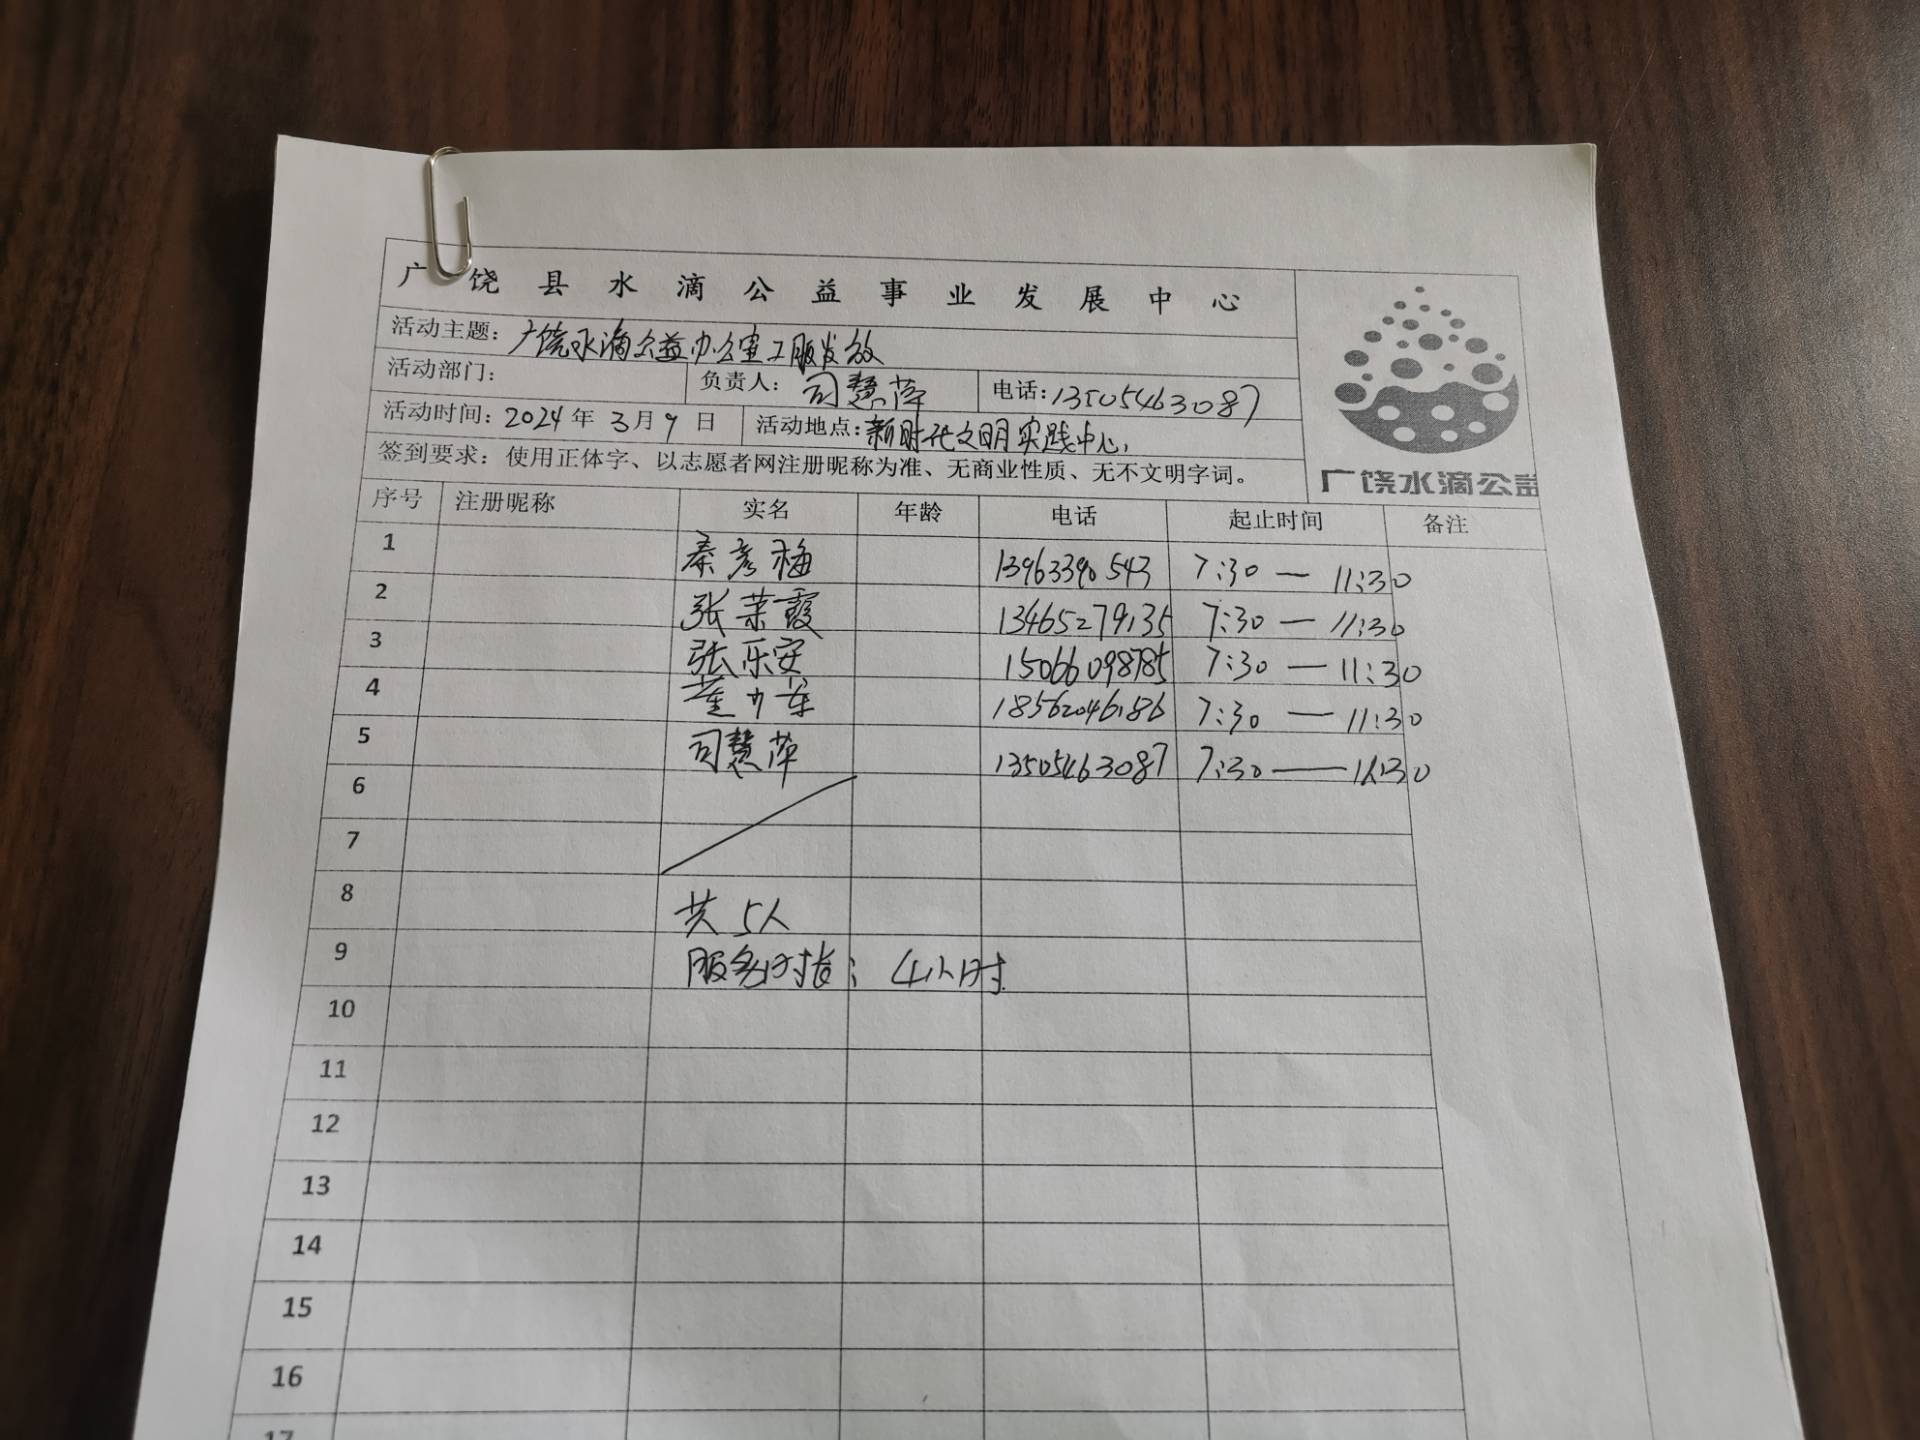 广饶县水滴公益事业发展中心
活动主题：广饶水滴公益办公室工服发放
活动部门： 负责人：司慧萍 电话：13505463087
活动时间：2024年3月9日 活动地点：新时代文明实践中心
签到要求：使用正体字、以志愿者网注册昵称为准、无商业性质、无不文明字词。
广饶水滴公益
序号 注册昵称 实名 年龄 电话 起止时间 备注
1 秦彦梅 13963390543 7:30 — 11:30
2 张荣霞 13465279135 7:30 — 11:30
3 张乐安 15066098785 7:30 — 11:30
4 18562046186 7:30 — 11:30
5 司慧萍 13505463087 7:30 — 11:30
6
7
8 共5人
9 服务时长：4小时
10
11
12
13
14
15
16
17